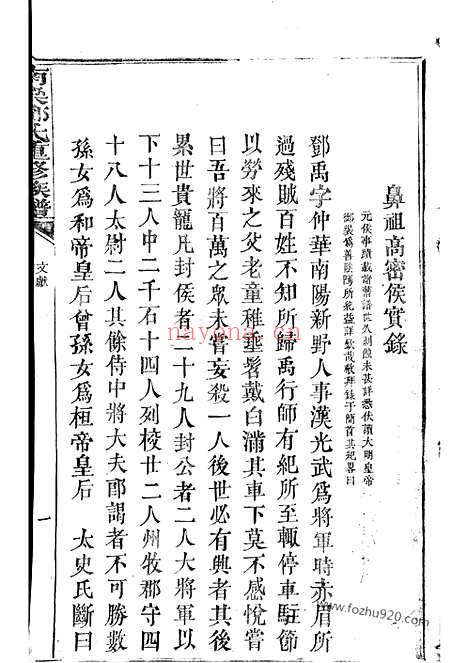 鼻祖高密侯實錄
元侯事蹟載諸舊譜世久剝蝕未甚詳悉伏讀大明皇帝
御製為善陰隲所紀益詳欽哉敬拜錄于簡首其紀畧曰
鄧禹字仲華南陽新野人事漢光武爲將軍時赤眉所
過殘賊百姓不知所歸禹行師有紀所至輒停車駐節
以勞來之父老童稚垂髫戴白滿其車下莫不感悅嘗
曰吾將百萬之眾未嘗妄殺一人後世必有興者其後
累世貴寵凡封侯者二十九人封公者二人大將軍以
下十三人中二千石十四人列校廿二人州牧郡守四
十八人太尉二人其餘侍中將大夫郎謁者不可勝數
孫女爲和帝皇后曾孫女爲桓帝皇后 太史氏斷曰
氏重修族譜
文獻
一
www.fozhu920.com
www.fozhu920.com